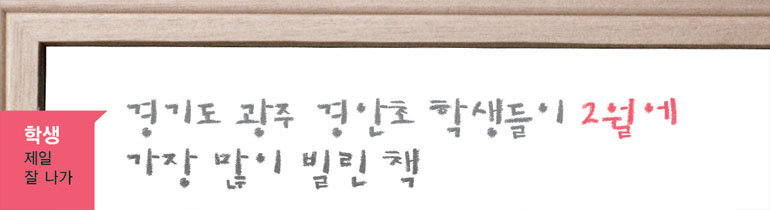 경기도 광주 경안초 학생들이 2월에
가장 많이 빌린 책
학생
제일
잘 나가